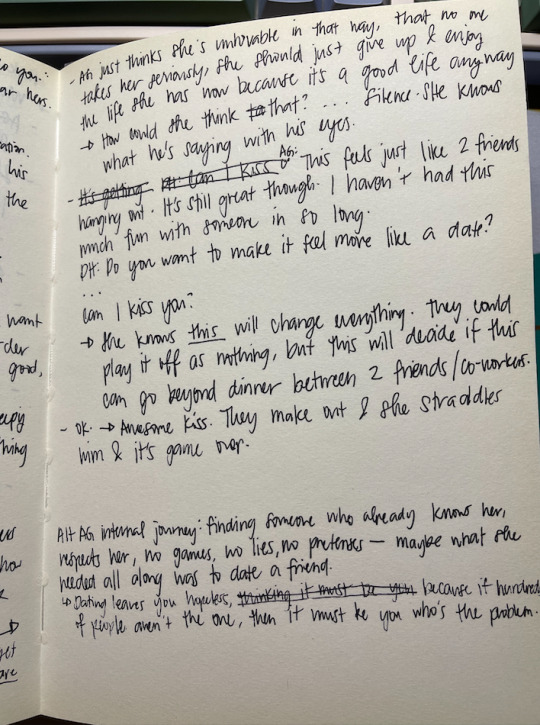 - AG just thinks she's unlovable in that way, that no one
takes her seriously, she should just give up & enjoy
the life she has now because it's a good life anyway
→ How could she think to that? .... Silence. She knows
what he's saying with his eyes.
- It's getting Can I kiss AG: This feels just like 2 friends
hanging out. It's still great though. I haven't had this
much fun with someone in so long.
DH: Do you want to make it feel more like a date?
...
Can I kiss you?
→ She knows this will change everything. They could
play it off as nothing, but this will decide if this
can go beyond dinner between 2 friends/co-workers.
- OK. → Awesome kiss. They make out & she straddles
him & it's game over.
Alt AG internal journey: finding someone who already knows her,
respects her, no games, no lies, no pretenses — maybe what she
needed all along was to date a friend.
↳ Dating leaves you hopeless, thinking it must be you because if hundreds
of people aren't the one, then it must be you who's the problem.
his
the
want
good,
thing